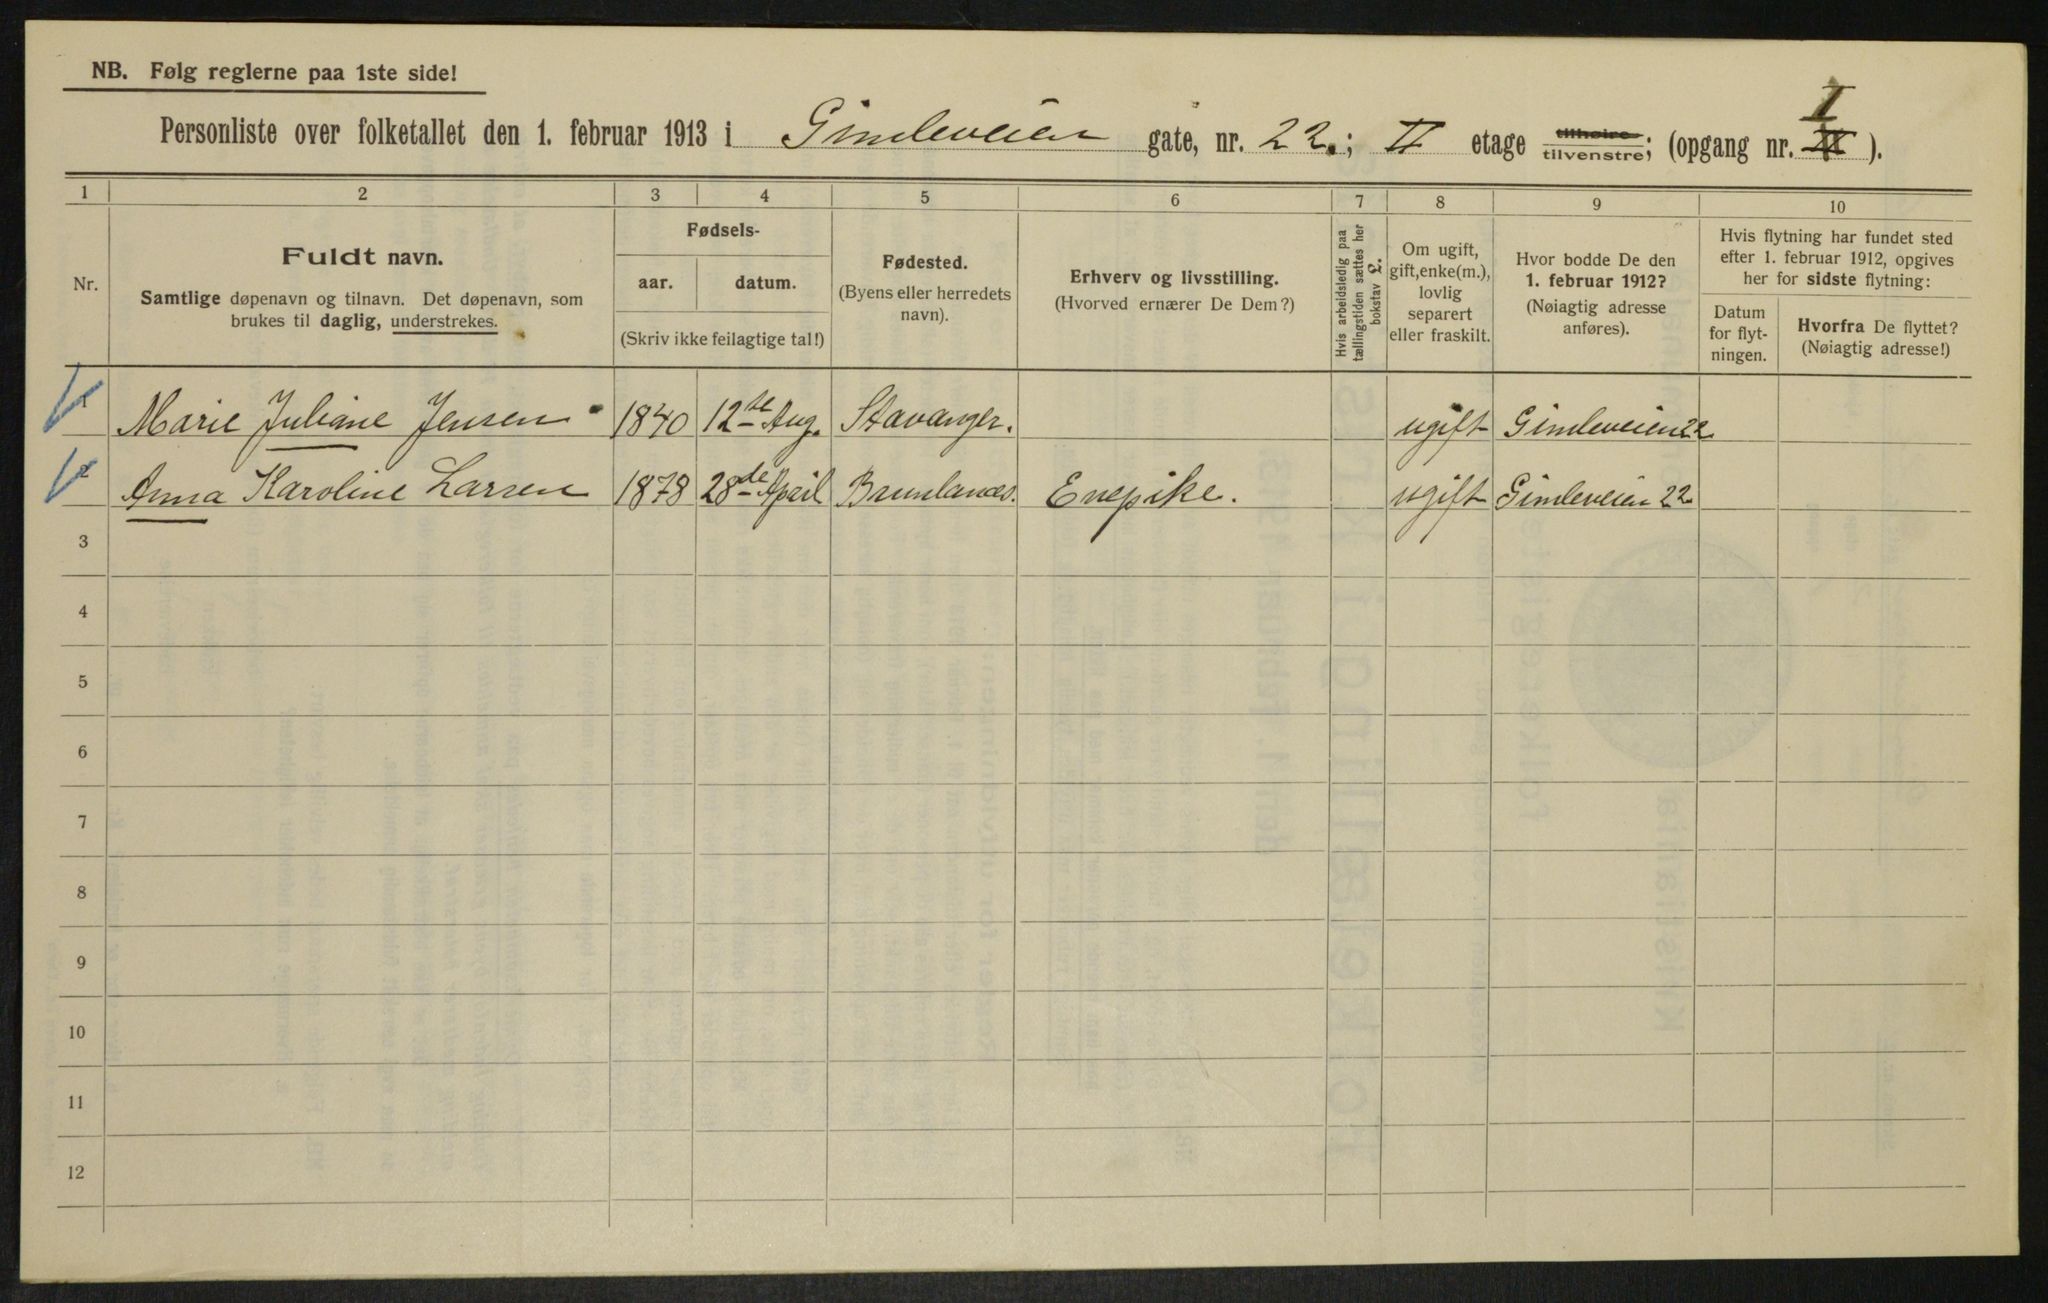 NB. Følg reglerne paa 1ste side!
Personliste over folketallet den 1. februar 1913 i Gimleveien gate, nr. 22.; II etage tilhøire tilvenstre; (opgang nr. I ).
1 2 3 4 5 6 7 8 9 10
Nr.
Fuldt navn.
Samtlige døpenavn og tilnavn. Det døpenavn, som
brukes til daglig, understrekes.
Fødsels-
aar. datum.
(Skriv ikke feilagtige tal!)
Fødested.
(Byens eller herredets
navn).
Erhverv og livsstilling.
(Hvorved ernærer De Dem?)
Hvis arbeidsledig paa
tællingstiden sættes her
bokstav L.
Om ugift,
gift, enke(m.),
lovlig
separert
eller fraskilt.
Hvor bodde De den
1. februar 1912?
(Nøiagtig adresse
anføres).
Hvis flytning har fundet sted
efter 1. februar 1912, opgives
her for sidste flytning:
Datum
for flyt-
ningen.
Hvorfra De flyttet?
(Nøiagtig adresse!)
1 Marie Juliane Jensen 1840 12te Aug. Stavanger. ugift Gimleveien 22
2 Anna Karoline Larsen 1878 28de April Brunlanæs. Enepike. ugift Gimleveien 22
3
4
5
6
7
8
9
10
11
12